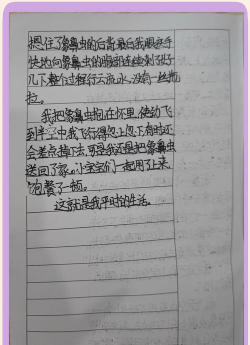 摁住了象鼻虫的后背最后我眼疾手
快地向象鼻虫的腹部连续刺了好
几下整个过程行云流水,没有一丝拖
拉。
我把象鼻虫抱在怀里,使劲飞
到半空中我飞行得忽上忽下,有时还
会差点掉下去,可是我还是把象鼻虫
送回了家。小宝宝们一起围了上来,
饱餐了一顿。
这就是我平时的生活。